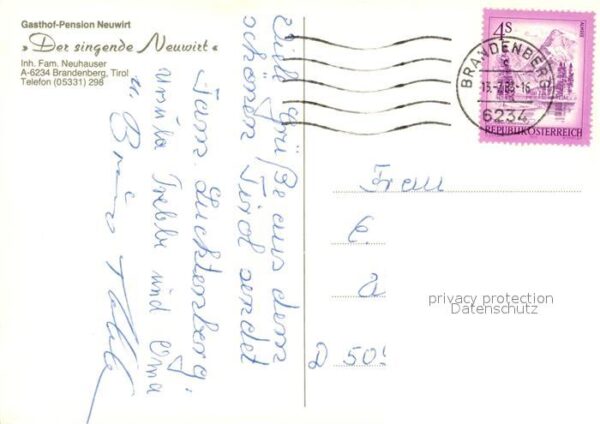 Gasthof-Pension Neuwirt
» Der singende Neuwirt «
Inh. Fam. Neuhauser
A-6234 Brandenberg, Tirol
Telefon (05331) 298
Viele Grüße aus dem
schönen Tirol sendet
Fam. Lucktenberg,
Ursula Trebbe und Oma
u.
4 S
BRANDENBERG
13.-7.83-16
6234
REPUBLIK ÖSTERREICH
Frau
E.
a
D 50
privacy protection
Datenschutz